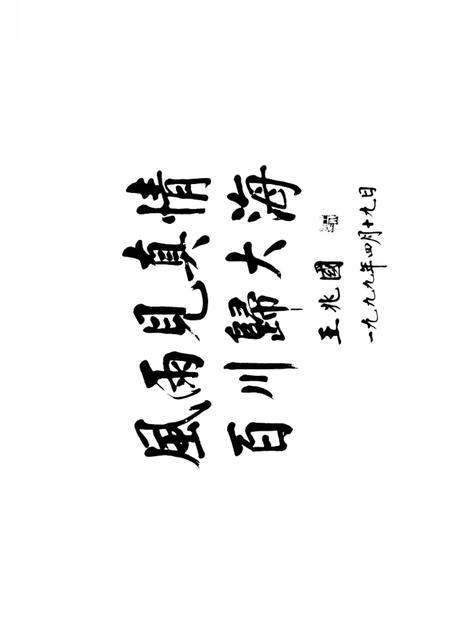 風雨見真情
百川歸大海
王兆國
一九九九年四月十九日